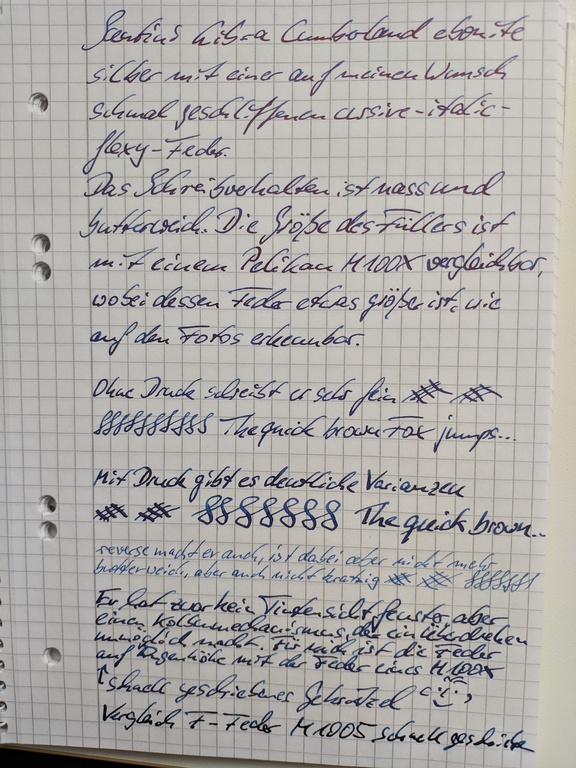 Santini Libra Cumberland ebonite
silber mit einer auf meinen Wunsch
schmal geschliffenen cursive-italic-
flexy-Feder.
Das Schreibverhalten ist nass und
butterweich. Die Größe des Füllers ist
mit einem Pelikan M100X vergleichbar,
wobei dessen Feder etwas größer ist, wie
auf den Fotos erkennbar.
Ohne Druck schreibt er sehr fein
The quick brown Fox jumps...
Mit Druck gibt es deutliche Varianzen
The quick brown..
reverse macht er auch, ist dabei aber nicht mehr
butterweich, aber auch nicht kratzig
Er hat zwar kein Tintensichtfenster, aber
einen Kolbenmechanismus, der ein Überdrehen
unmöglich macht. Für mich ist die Feder
auf Augenhöhe mit der Feder eines M100X
↑ schnell geschriebenes Gekrakel
Vergleich F-Feder M1005 schnell geschrieben